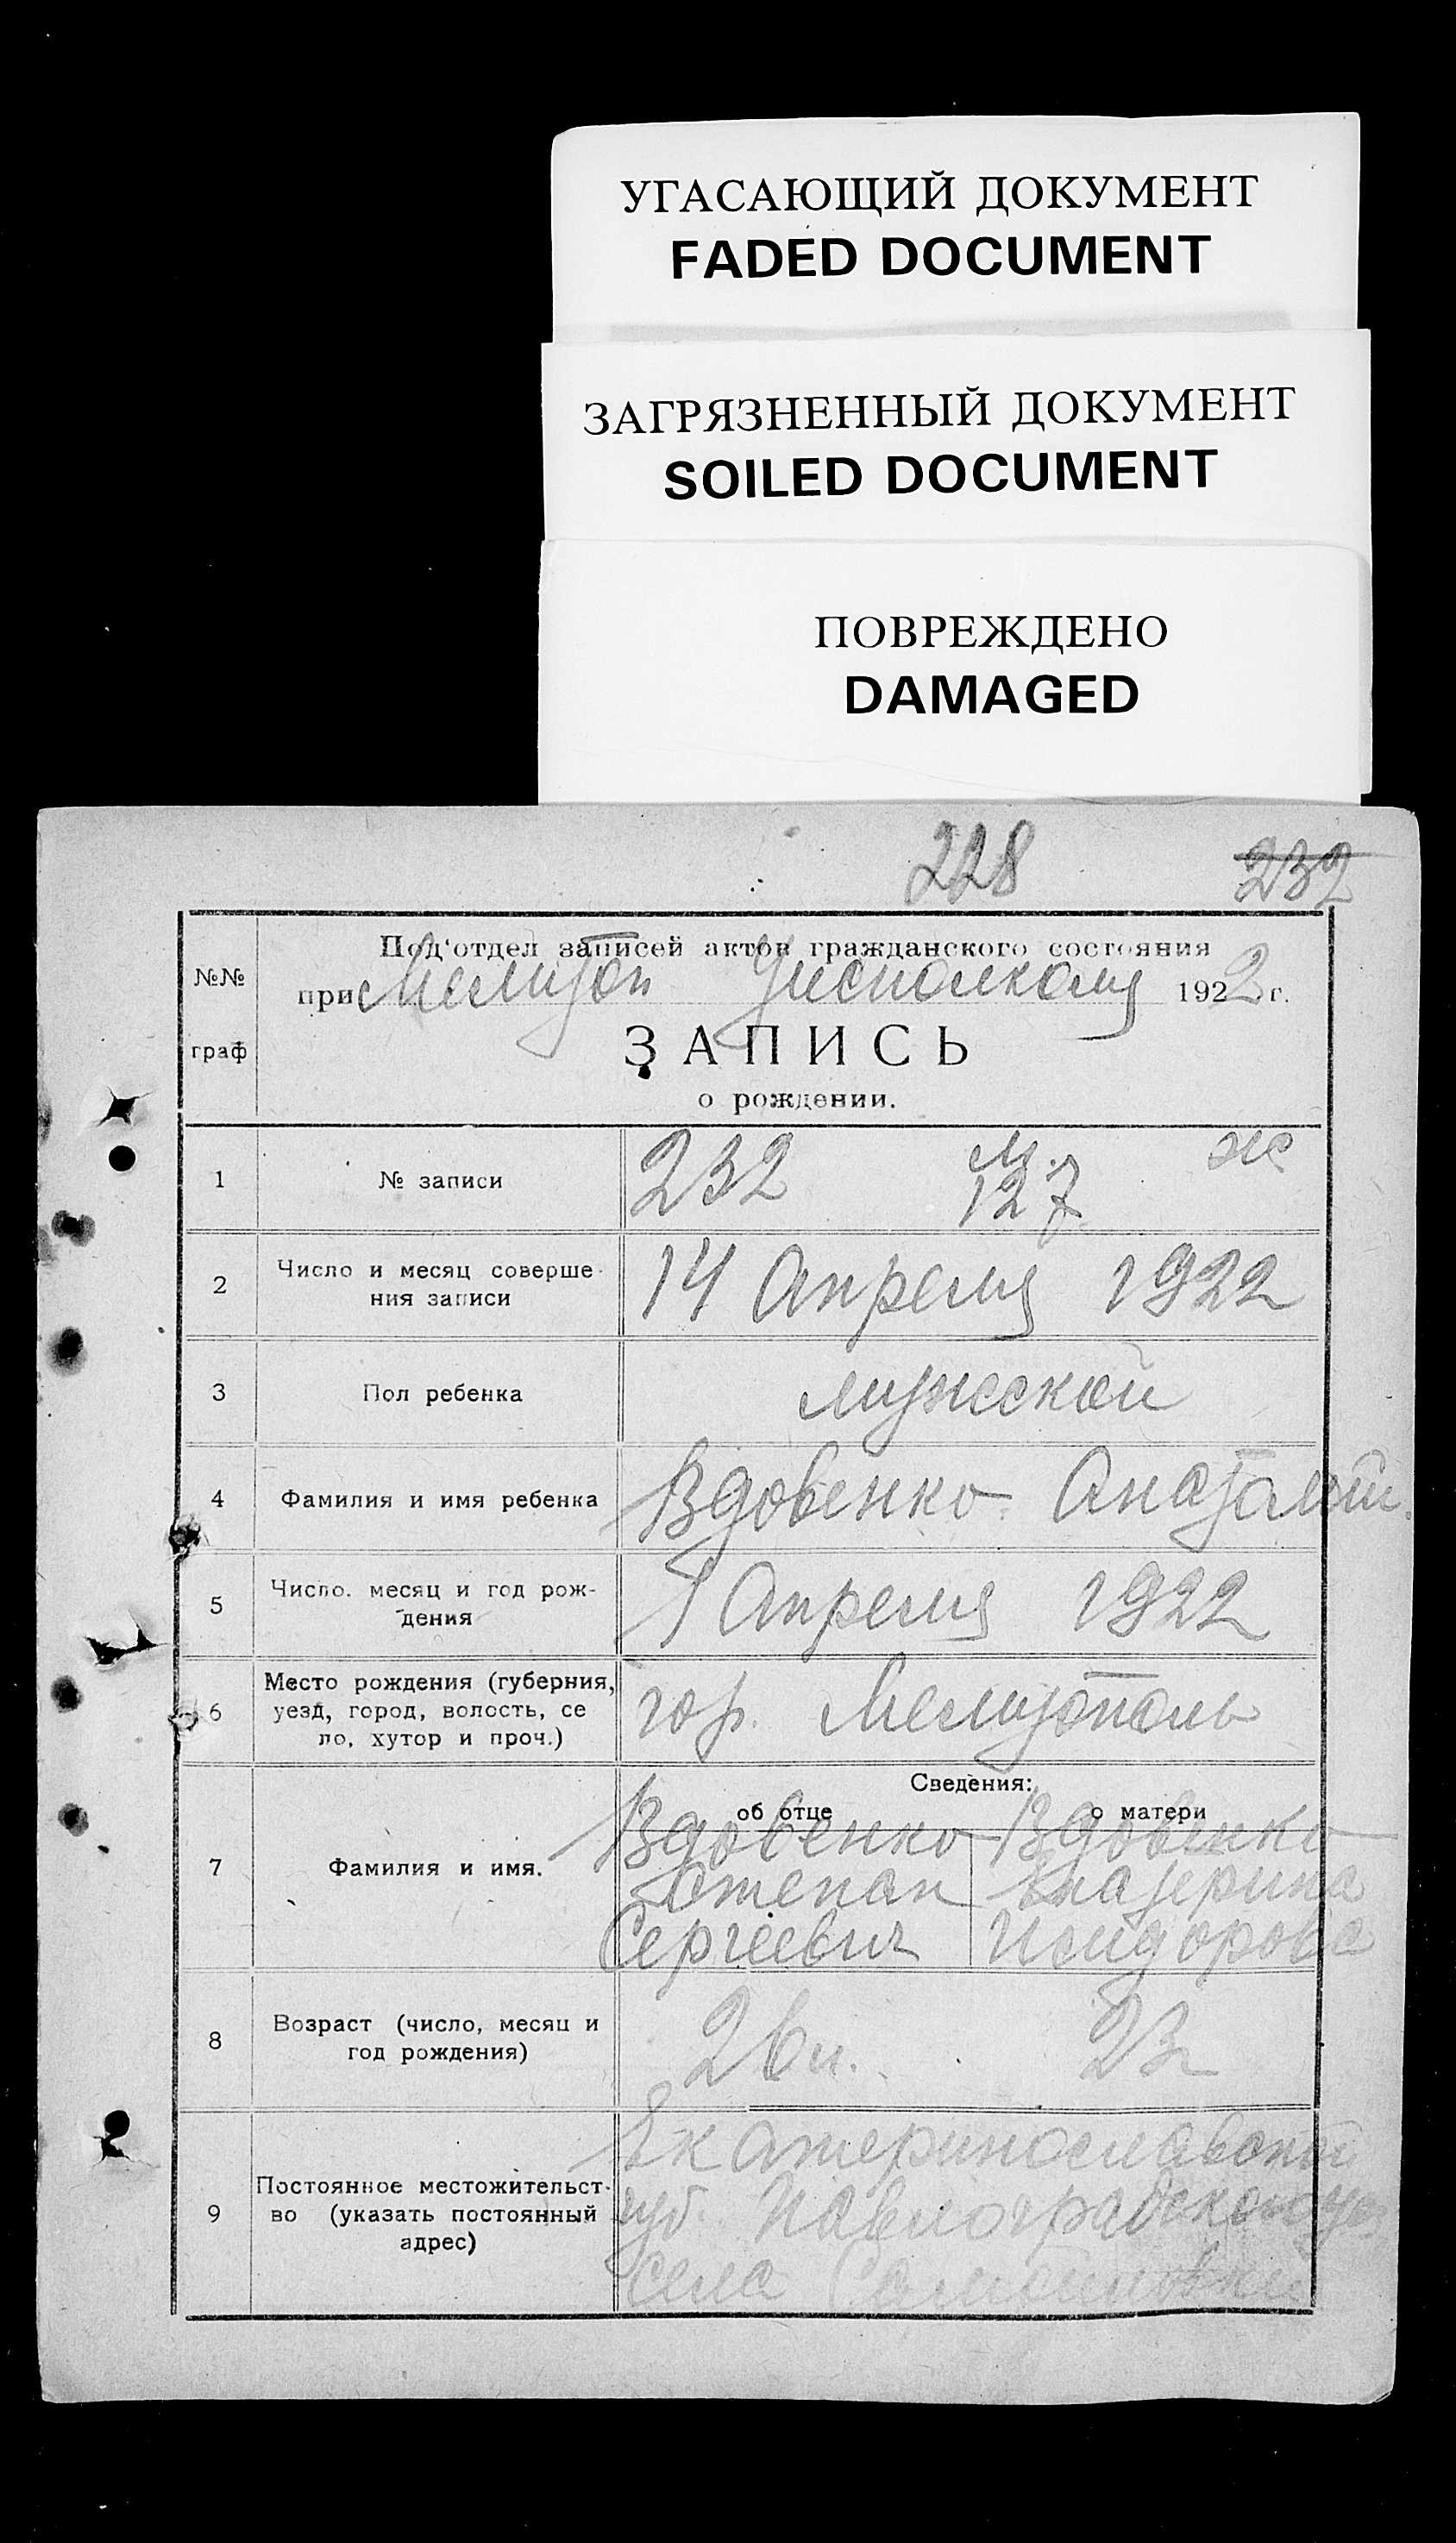 УГАСАЮЩИЙ ДОКУМЕНТ
FADED DOCUMENT
ЗАГРЯЗНЕННЫЙ ДОКУМЕНТ
SOILED DOCUMENT
ПОВРЕЖДЕНО
DAMAGED
228 232
№№ граф
Под'отдел записей актов гражданского состояния
при Мелитоп Уисполкому 1922 г.
ЗАПИСЬ
о рождении.
1 № записи 232 м. 127 ж
2 Число и месяц соверше-
ния записи 14 Апреля 1922
3 Пол ребенка мужской
4 Фамилия и имя ребенка Вдовенко Анатолий
5 Число. месяц и год рож-
дения 1 Апреля 1922
6 Место рождения (губерния,
уезд, город, волость, се
ло, хутор и проч.) гор. Мелитополь
Сведения:
об отце о матери
7 Фамилия и имя. Вдовенко Вдовенко
Степан Екатерина
Сергеевич Исидорова
8 Возраст (число, месяц и
год рождения) 26 23
9 Постоянное местожительст-
во (указать постоянный
адрес) Екатеринославской
губ. Павлоградского у
села